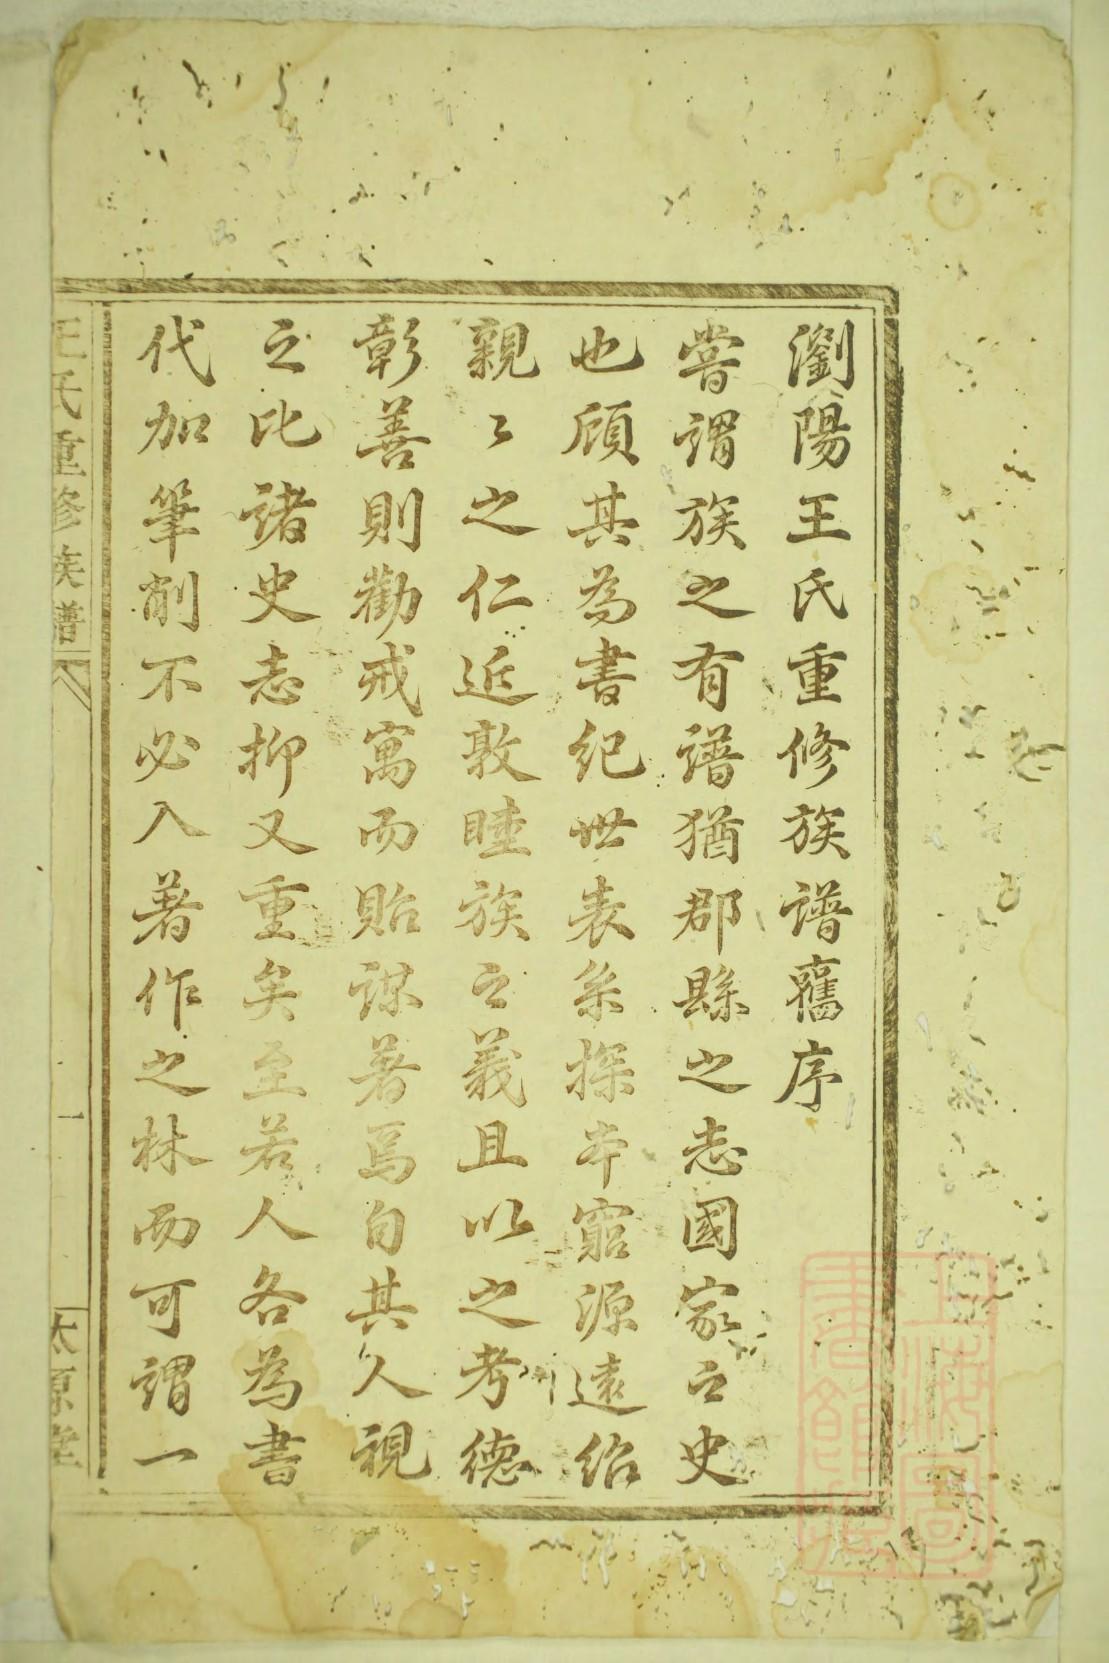 瀏陽王氏重修族譜舊序
嘗謂族之有譜猶郡縣之志國家之史
也顧其為書紀世表系探本窮源遠紹
親〻之仁近敦睦族之義且以之考德
彰善則勸戒寓而貽謀著焉自其人視
之比諸史志抑又重矣至若人各為書
代加筆削不必入著作之林而可謂一
王氏重修族譜
一
太原堂
上海圖書館藏